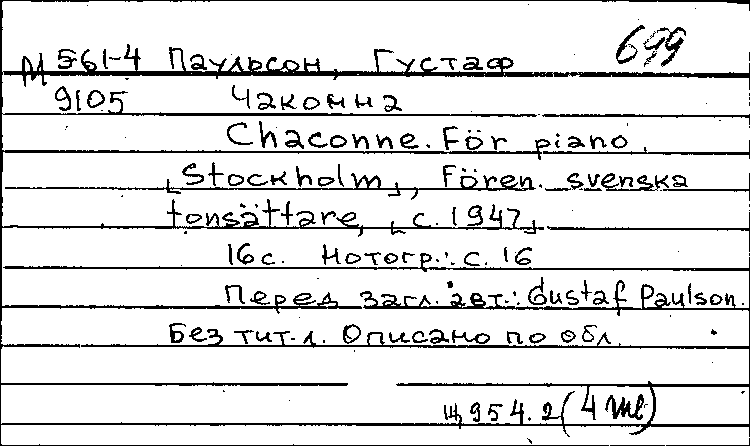 М 561-4 Паульсон, Густаф 699
9105 Чаконна
Chaconne. För piano.
[Stockholm], Fören. svenska
tonsättare, [c. 1947]
16 с. Нотогр.: с. 16
Перед загл. авт.: Gustaf Paulson.
Без тит. л. Описано по обл.
Щ954.2 (4Ше)